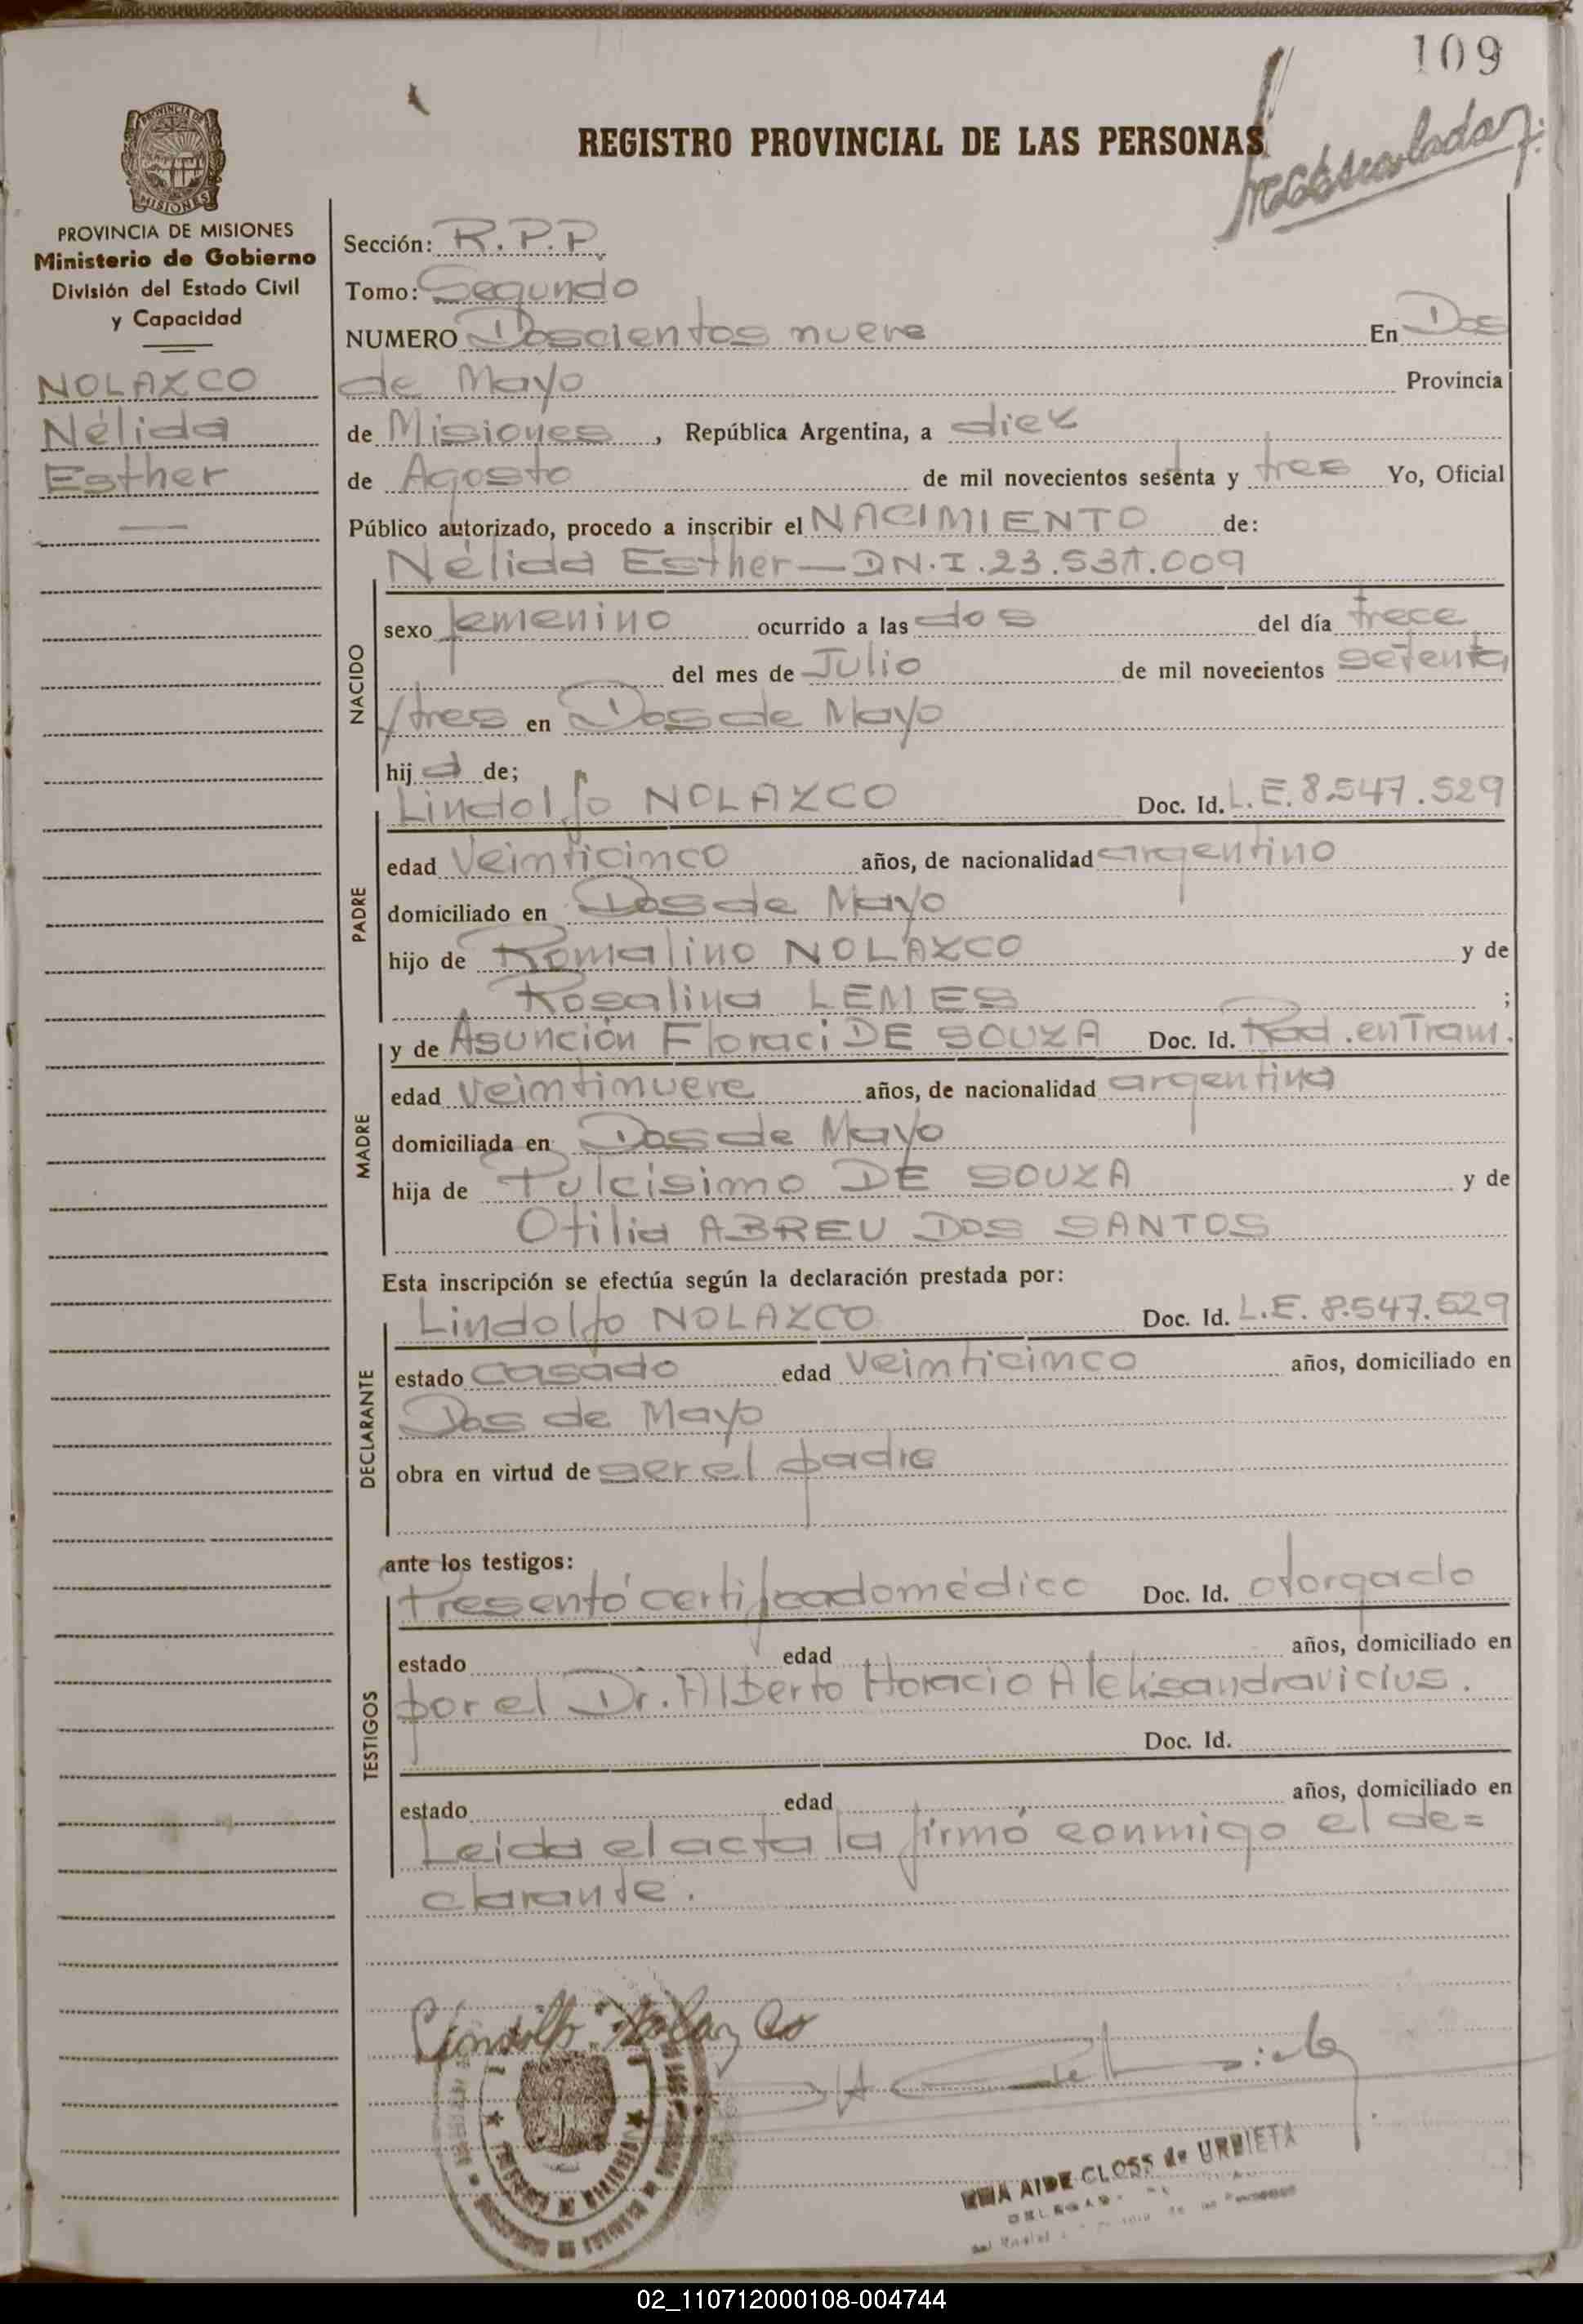 109
REGISTRO PROVINCIAL DE LAS PERSONAS
PROVINCIA DE MISIONES
Ministerio de Gobierno
División del Estado Civil
y Capacidad
NOLAZCO
Nélida
Esther
Sección: R.P.P.
Tomo: Segundo
NUMERO Doscientos nueve En Dos
de Mayo Provincia
de Misiones, República Argentina, a diez
de Agosto de mil novecientos sesenta y tres Yo, Oficial
Público autorizado, procedo a inscribir el NACIMIENTO de:
Nélida Esther — D.N.I. 23.531.009
NACIDO
sexo femenino ocurrido a las dos del día trece
del mes de Julio de mil novecientos setenta
y tres en Dos de Mayo
hij a de;
PADRE
Lindolfo NOLAZCO Doc. Id. L.E. 8.547.529
edad veinticinco años, de nacionalidad argentino
domiciliado en Dos de Mayo
hijo de Romalino NOLAZCO y de
Rosalina LEMES ;
MADRE
y de Asunción Floraci DE SOUZA Doc. Id. Rad. en Tram.
edad veintinueve años, de nacionalidad argentina
domiciliada en Dos de Mayo
hija de Pulcisimo DE SOUZA y de
Otilia ABREU DOS SANTOS
Esta inscripción se efectúa según la declaración prestada por:
DECLARANTE
Lindolfo NOLAZCO Doc. Id. L.E. 8.547.529
estado casado edad veinticinco años, domiciliado en
Dos de Mayo
obra en virtud de ser el padre
ante los testigos:
TESTIGOS
Presentó certificado médico Doc. Id. otorgado
estado edad años, domiciliado en
por el Dr. Alberto Horacio Aleksandravicius.
Doc. Id.
estado edad años, domiciliado en
Leida el acta la firmó conmigo el de=
clarante.
Lindolfo Nolazco
AIDE CLOSS de URBIETA
02_110712000108-004744